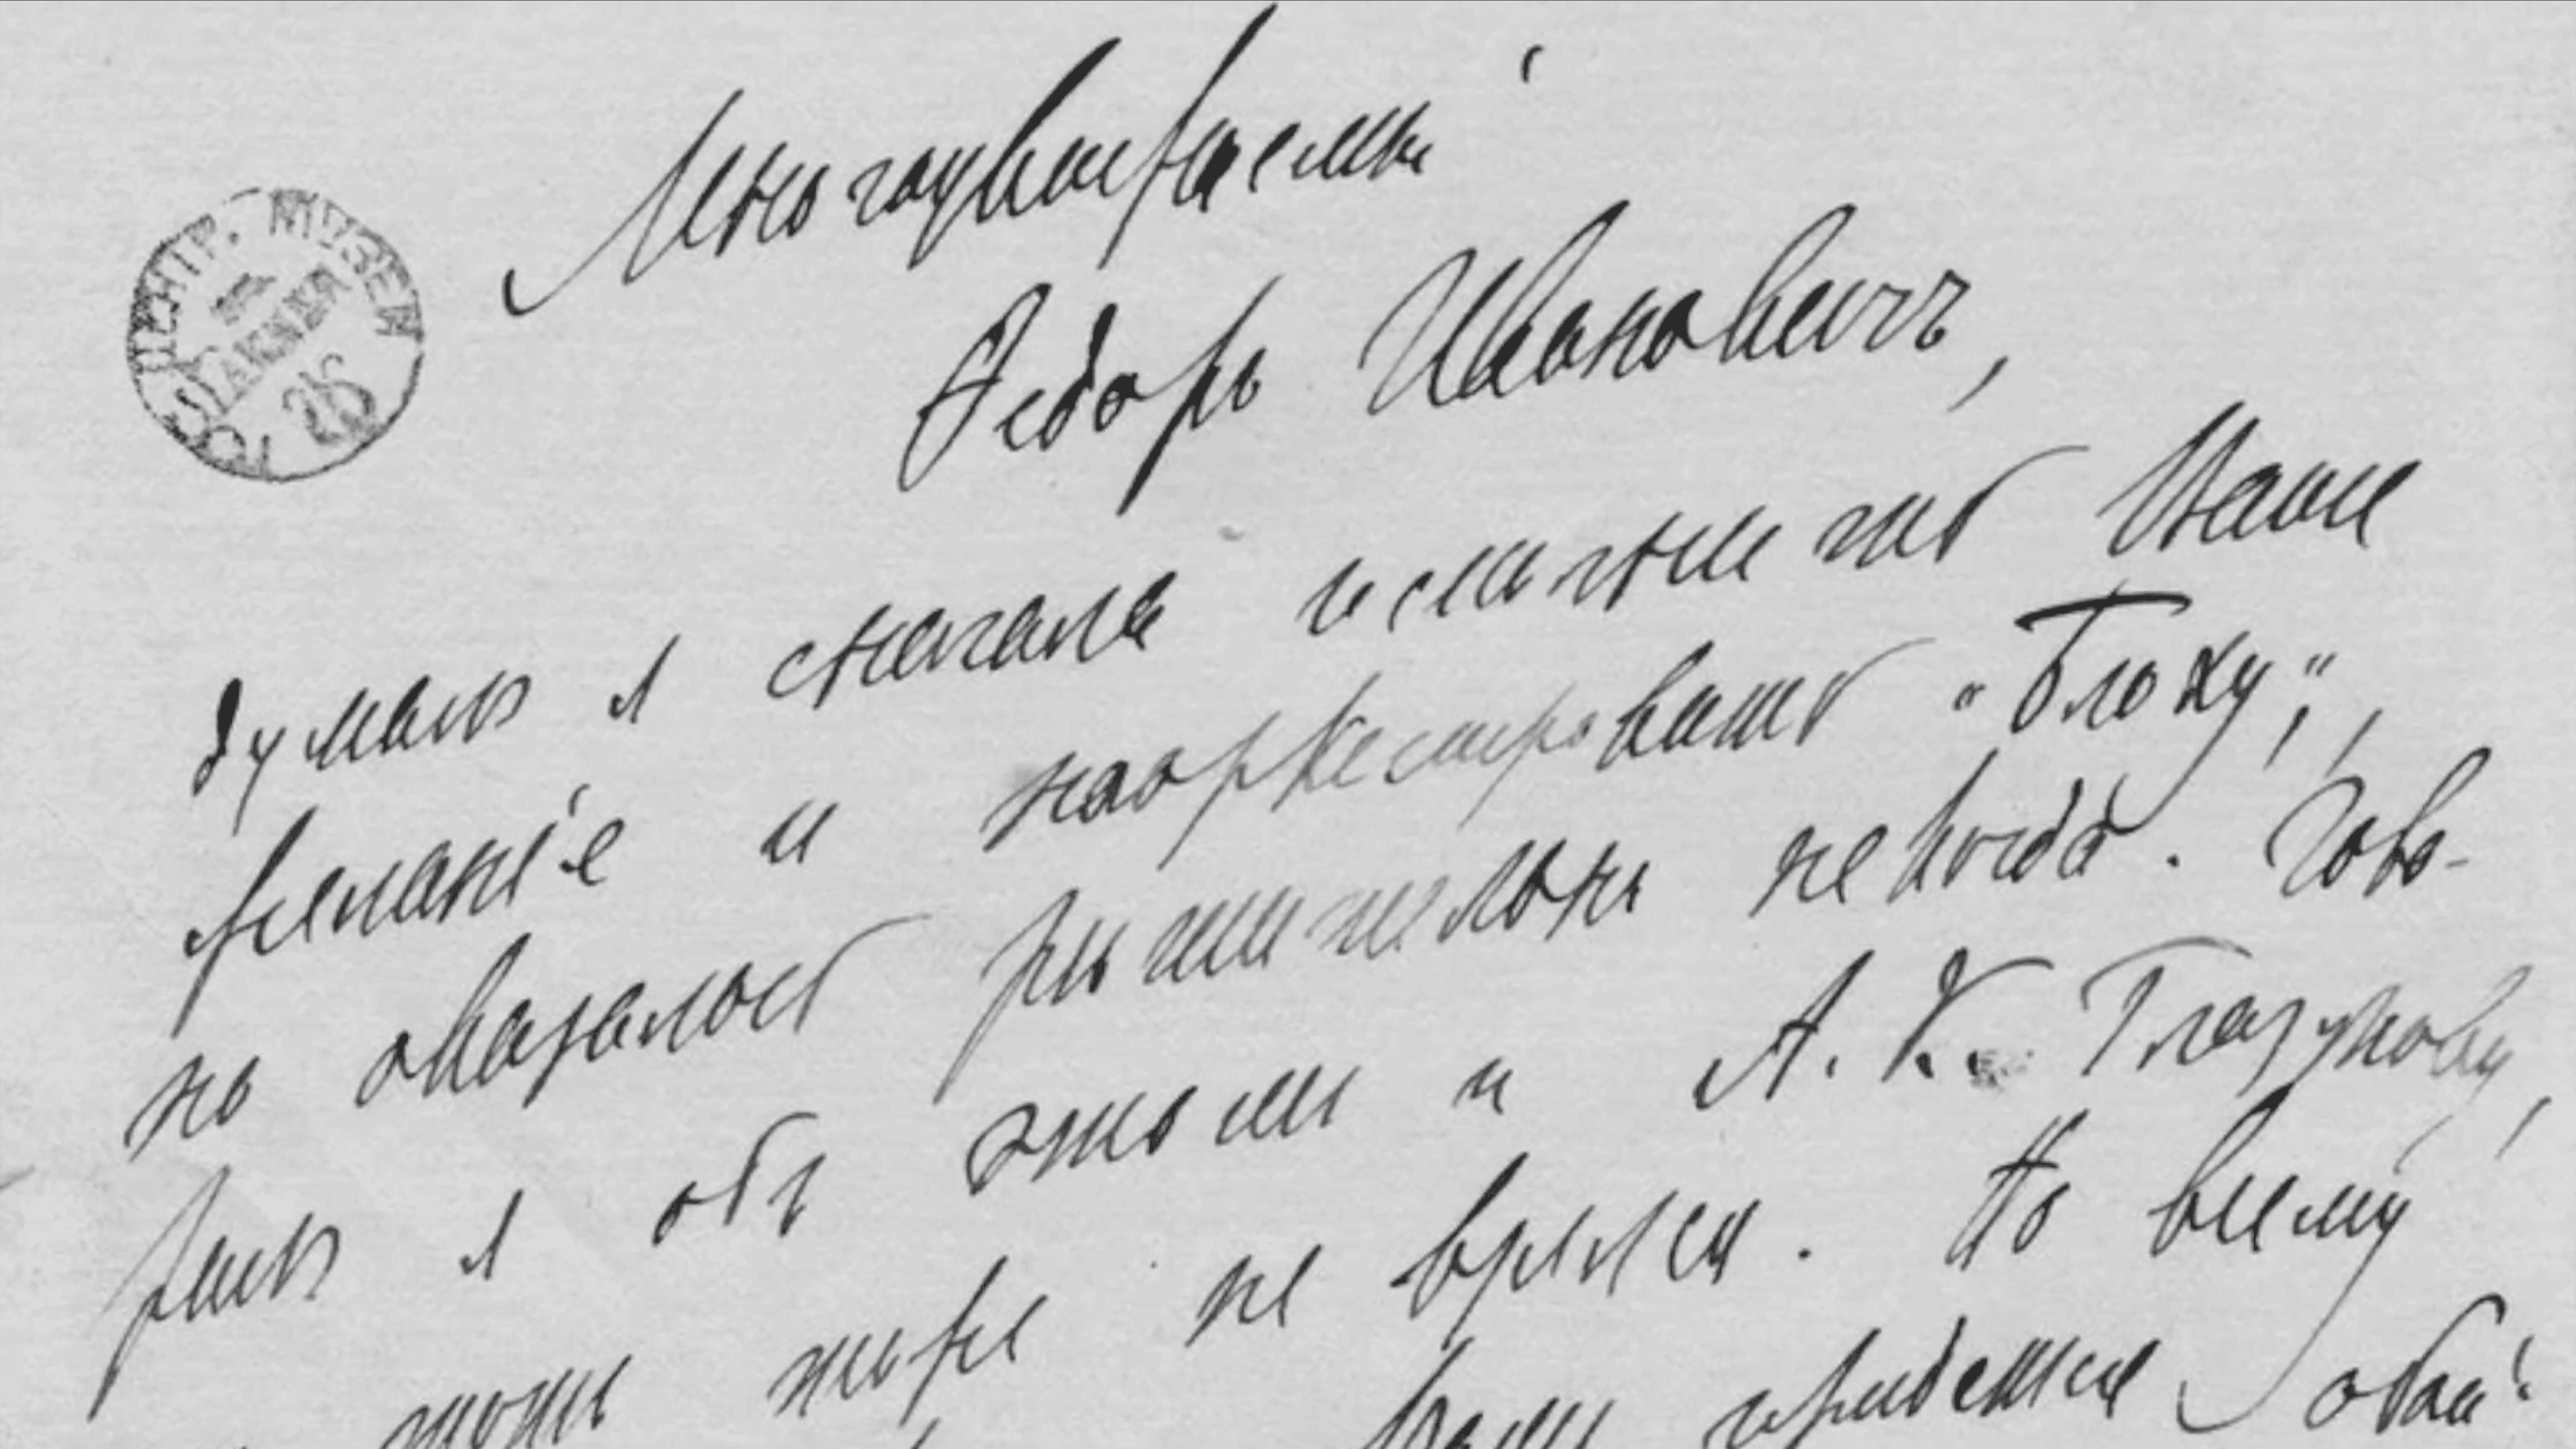 ЦЕНТР. МУЗЕЙ
Многоуважаемый
Ѳедоръ Ивановичъ,
думалъ я сначала исполнить Ваше
желаніе и наоркестровать „Блоху“,
но оказалось рѣшительно некогда. Гово-
рилъ я объ этомъ и А. К. Глазунову,
тоже не время. По всему
придется обой-